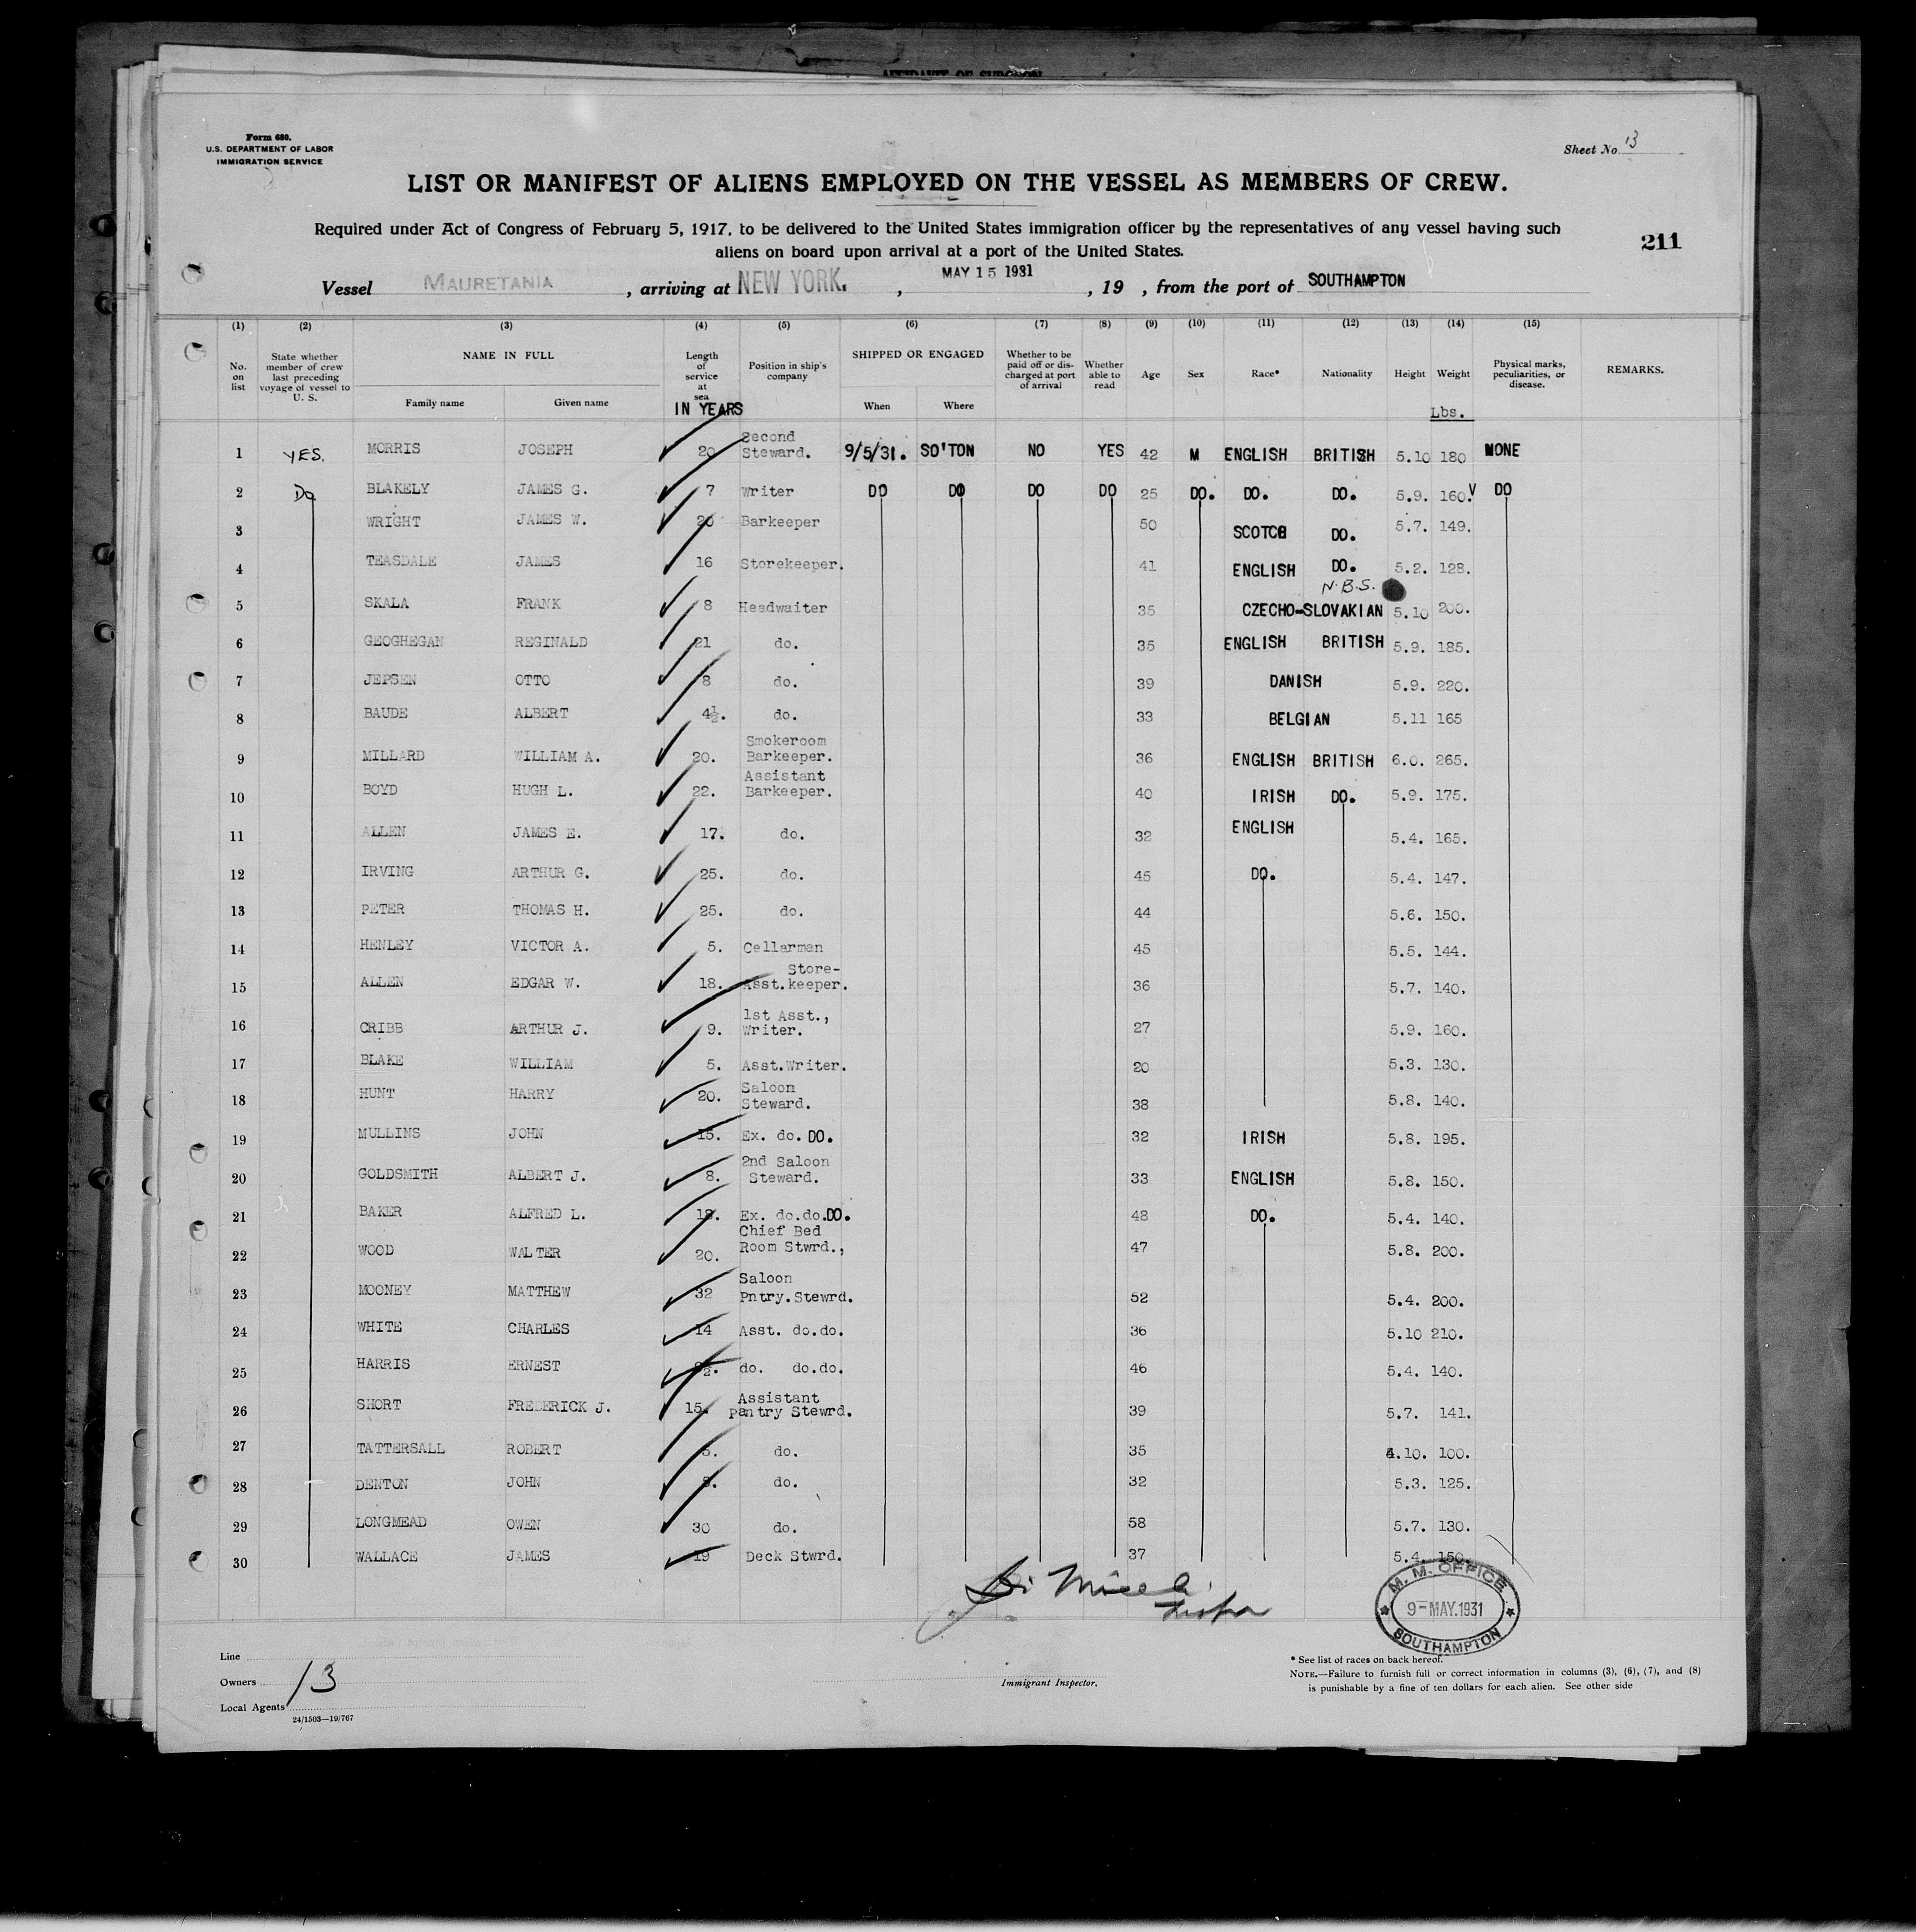 AFFIDAVIT OF SURGEON
Form 680.
U.S. DEPARTMENT OF LABOR
IMMIGRATION SERVICE
Sheet No 13
LIST OR MANIFEST OF ALIENS EMPLOYED ON THE VESSEL AS MEMBERS OF CREW.
Required under Act of Congress of February 5, 1917, to be delivered to the United States immigration officer by the representatives of any vessel having such
aliens on board upon arrival at a port of the United States.
211
Vessel MAURETANIA, arriving at NEW YORK., MAY 15 1931, 19 , from the port of SOUTHAMPTON
(1) (2) (3) (4) (5) (6) (7) (8) (9) (10) (11) (12) (13) (14) (15)
No. on list State whether member of crew last preceding voyage of vessel to U. S. NAME IN FULL Family name Given name Length of service at sea IN YEARS Position in ship's company SHIPPED OR ENGAGED When Where Whether to be paid off or discharged at port of arrival Whether able to read Age Sex Race* Nationality Height Weight Lbs. Physical marks, peculiarities, or disease. REMARKS.
1 YES. MORRIS JOSEPH 20 Second Steward. 9/5/31. SO'TON NO YES 42 M ENGLISH BRITISH 5.10 180 NONE
2 Do BLAKELY JAMES G. 7 Writer DO DO DO DO 25 DO. DO. DO. 5.9. 160. V DO
3 WRIGHT JAMES W. 20 Barkeeper 50 SCOTCH DO. 5.7. 149.
4 TEASDALE JAMES 16 Storekeeper. 41 ENGLISH DO. 5.2. 128.
N.B.S.
5 SKALA FRANK 8 Headwaiter 35 CZECHO-SLOVAKIAN 5.10 200.
6 GEOGHEGAN REGINALD 21 do. 35 ENGLISH BRITISH 5.9. 185.
7 JEPSEN OTTO 8 do. 39 DANISH 5.9. 220.
8 BAUDE ALBERT 4½. do. 33 BELGIAN 5.11 165
9 MILLARD WILLIAM A. 20. Smokeroom Barkeeper. 36 ENGLISH BRITISH 6.0. 265.
10 BOYD HUGH L. 22. Assistant Barkeeper. 40 IRISH DO. 5.9. 175.
11 ALLEN JAMES E. 17. do. 32 ENGLISH 5.4. 165.
12 IRVING ARTHUR G. 25. do. 45 DO. 5.4. 147.
13 PETER THOMAS H. 25. do. 44 5.6. 150.
14 HENLEY VICTOR A. 5. Cellarman 45 5.5. 144.
15 ALLEN EDGAR W. 18. Store- Asst.keeper. 36 5.7. 140.
16 CRIBB ARTHUR J. 9. 1st Asst., Writer. 27 5.9. 160.
17 BLAKE WILLIAM 5. Asst.Writer. 20 5.3. 130.
18 HUNT HARRY 20. Saloon Steward. 38 5.8. 140.
19 MULLINS JOHN 15. Ex. do. DO. 32 IRISH 5.8. 195.
20 GOLDSMITH ALBERT J. 8. 2nd Saloon Steward. 33 ENGLISH 5.8. 150.
21 BAKER ALFRED L. 18. Ex. do.do.DO. 48 DO. 5.4. 140.
22 WOOD WALTER 20. Chief Bed Room Stwrd., 47 5.8. 200.
23 MOONEY MATTHEW 32 Saloon Pntry.Stewrd. 52 5.4. 200.
24 WHITE CHARLES 14 Asst. do.do. 36 5.10 210.
25 HARRIS ERNEST do. do.do. 46 5.4. 140.
26 SHORT FREDERICK J. 15. Assistant pantry Stewrd. 39 5.7. 141.
27 TATTERSALL ROBERT do. 35 4.10. 100.
28 DENTON JOHN do. 32 5.3. 125.
29 LONGMEAD OWEN 30 do. 58 5.7. 130.
30 WALLACE JAMES 19 Deck Stwrd. 37 5.4. 150.
M. M. OFFICE
9-MAY.1931
SOUTHAMPTON
Line
Owners
13
Local Agents
24/1503—19/767
Immigrant Inspector.
* See list of races on back hereof.
NOTE.—Failure to furnish full or correct information in columns (3), (6), (7), and (8)
is punishable by a fine of ten dollars for each alien. See other side